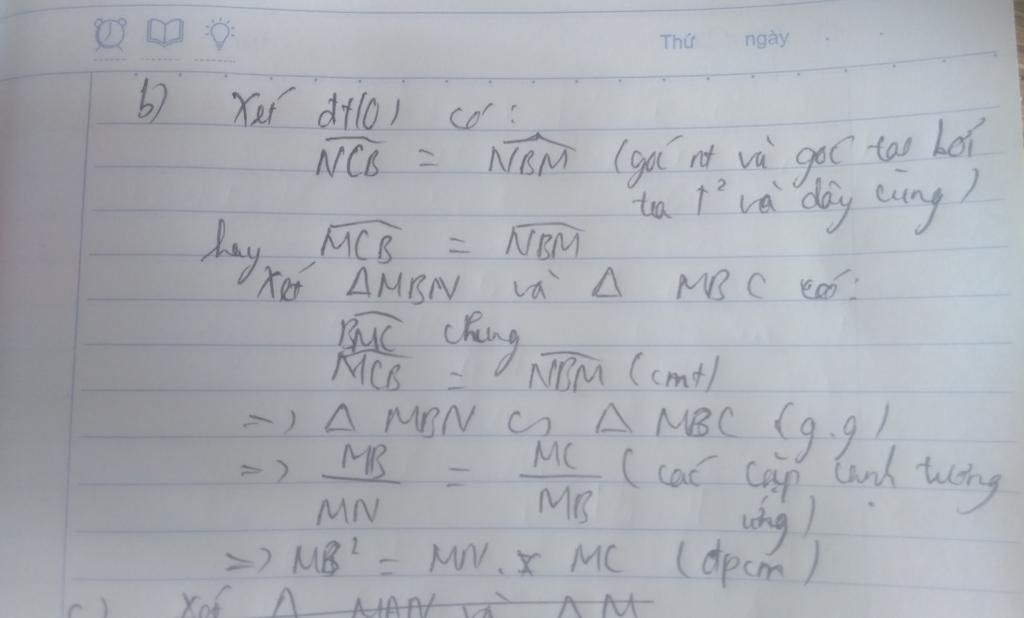 Thứ ngày
b) Xét đt(O) có:
NCB = NBM (góc nt và góc tạo bởi
tia t² và dây cùng)
hay MCB = NBM
Xét ΔMBN và Δ MBC có:
BMC chung
MCB = NBM (cmt)
=> Δ MBN ∽ Δ MBC (g.g)
=> MB/MN = MC/MB (các cặp cạnh tương
ứng)
=> MB² = MN. MC (đpcm)
c) Xét Δ MAN và ΔM